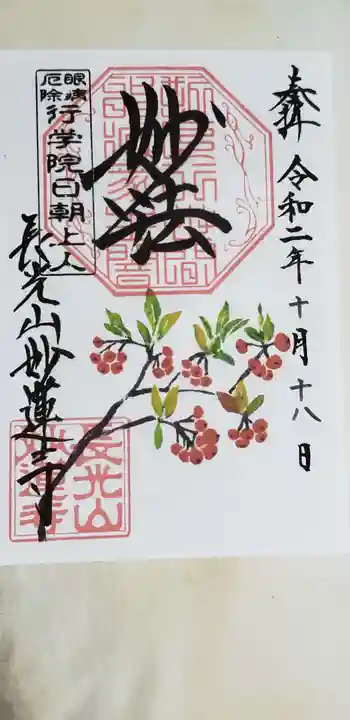 奉拝 令和二年十月十八日
妙法
眼病
厄除
行学院日朝上人
長光山妙蓮寺
長光山
妙蓮寺